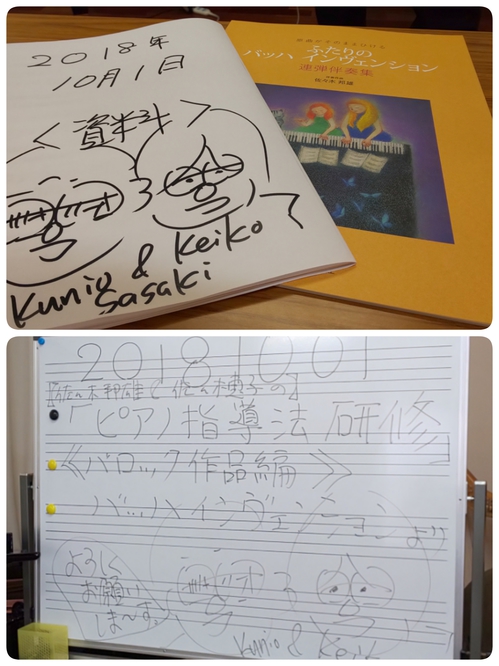 2018年
10月1日
<資料>
Kunio & Keiko
Sasaki
ふたりの
バッハ インヴェンション
連弾伴奏集
佐々木 邦雄
20181001
【佐々木邦雄と佐々木恵子の】
「ピアノ指導法 研修」
≪バロック作品編≫
バッハインヴェンション より
よろしく
お願い
しま~す。
Kunio & Keik